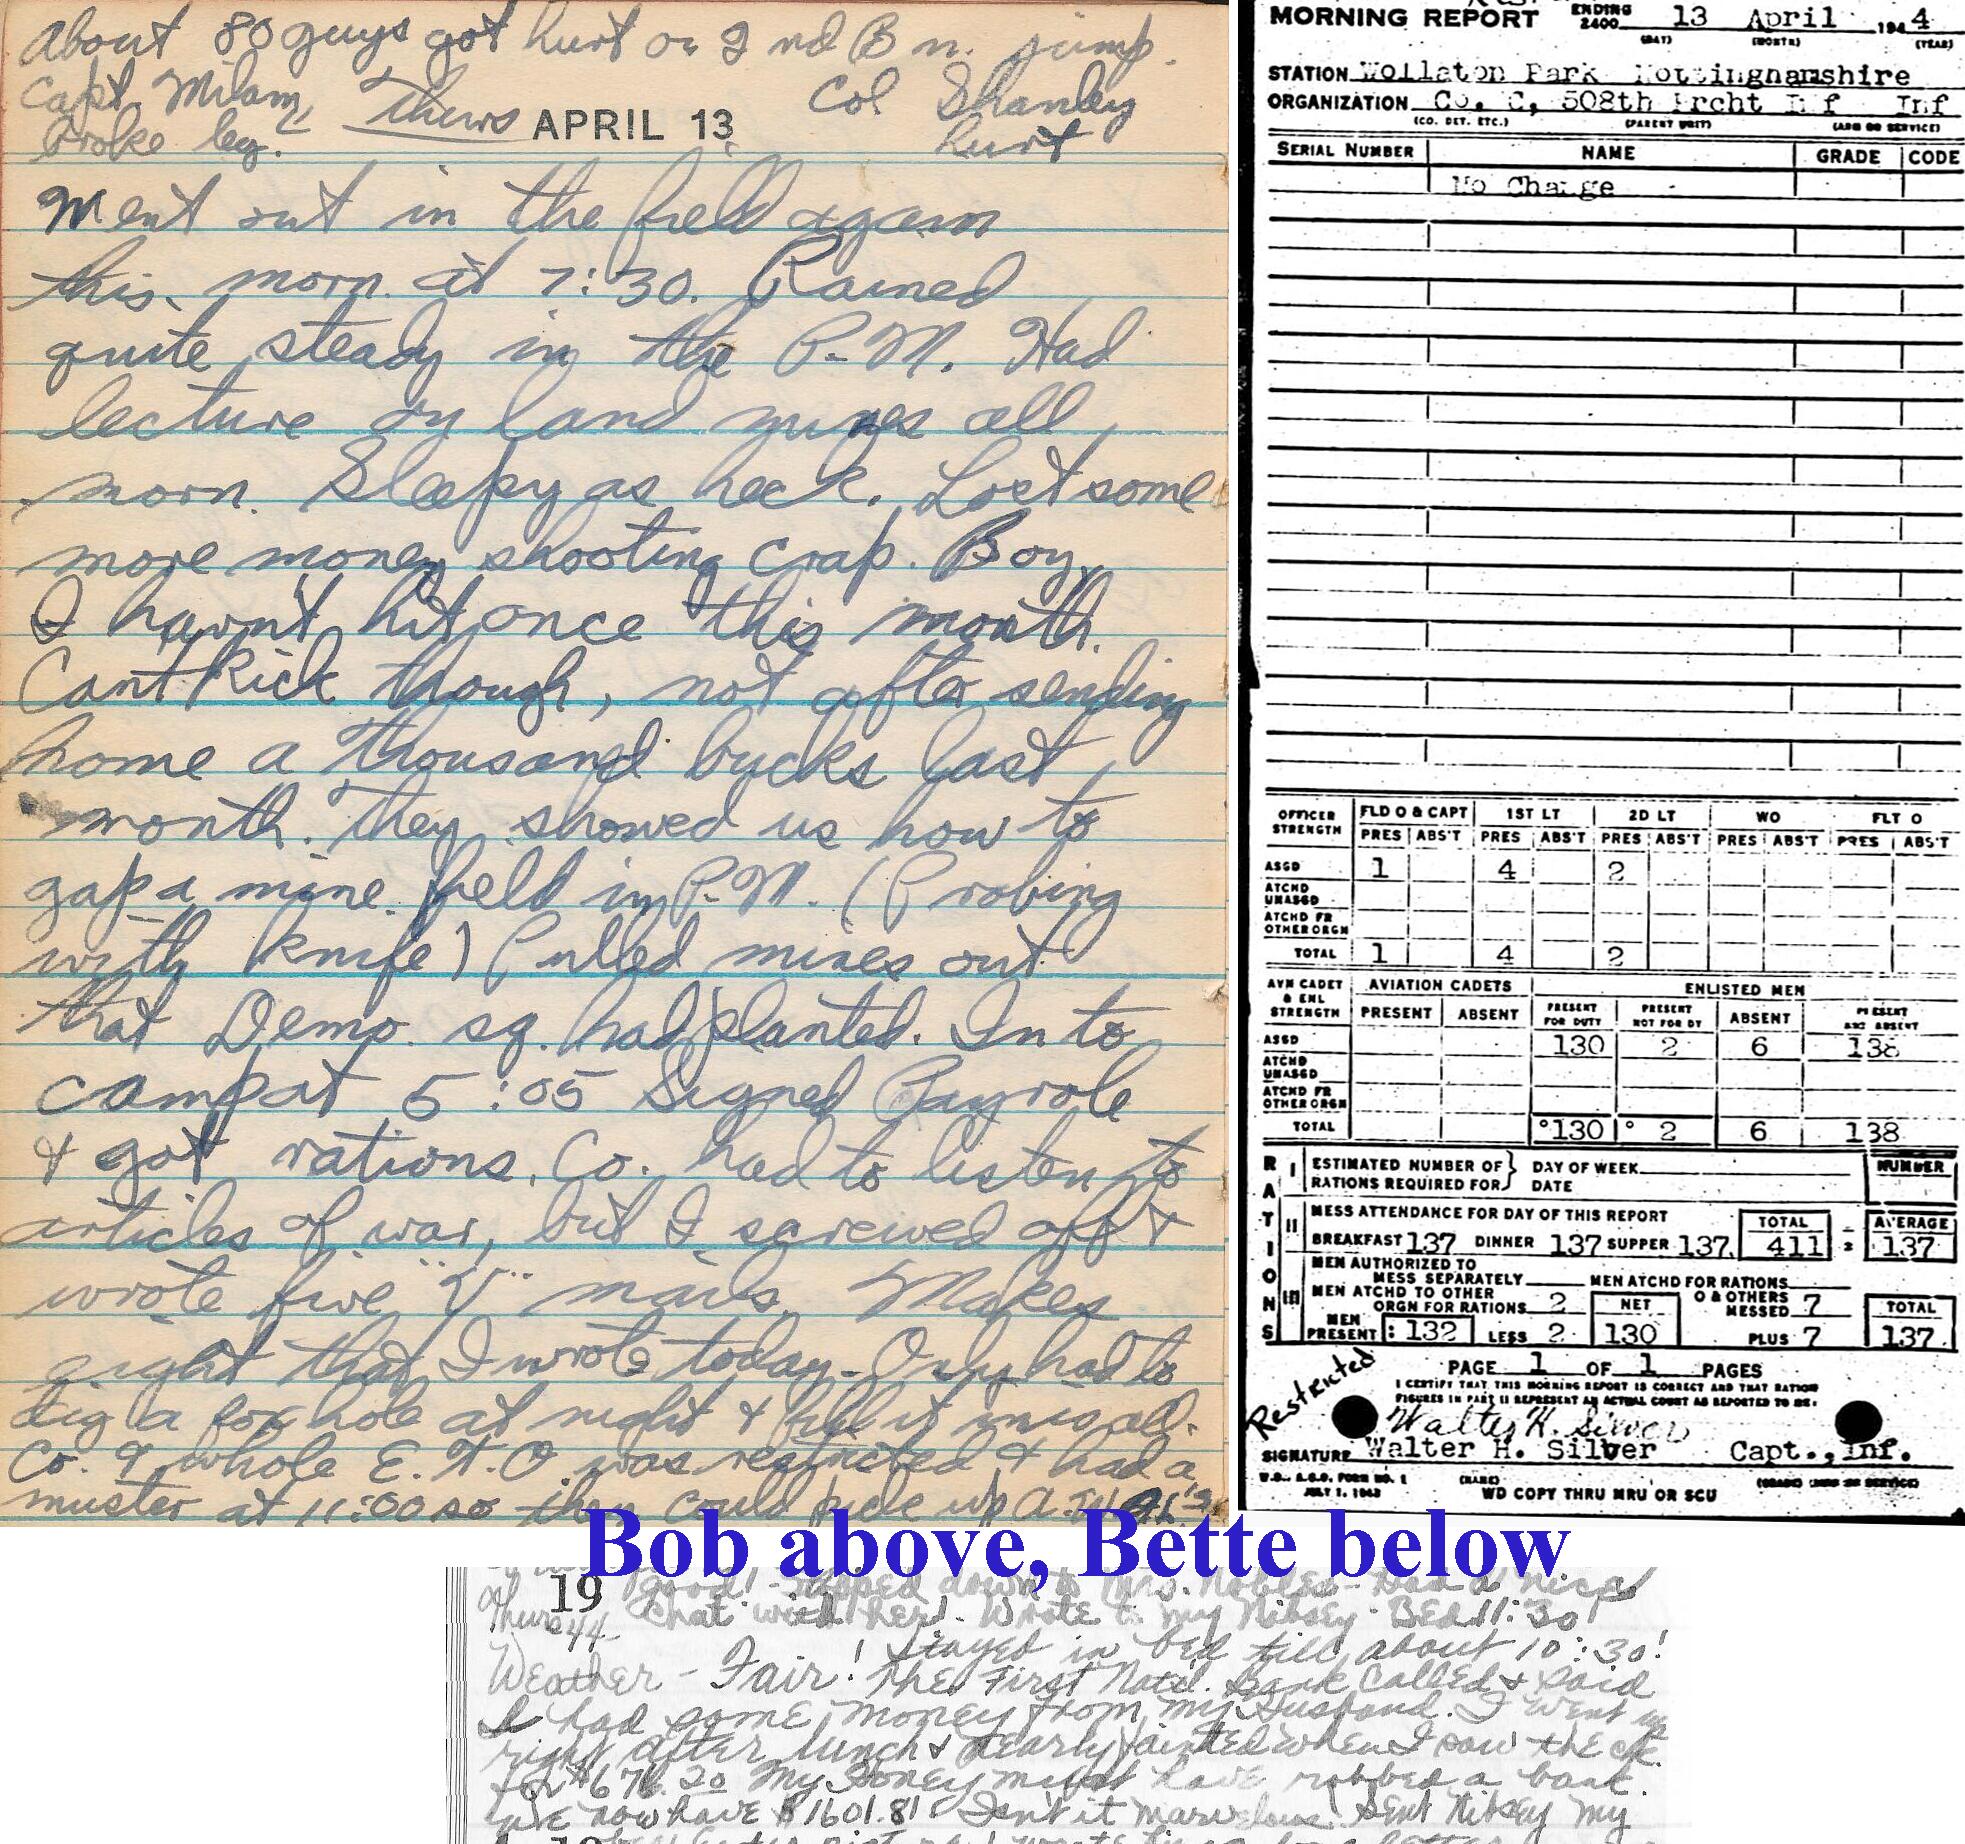 About 80 guys got hurt on 2nd Bn. jump.
Capt. Milam Col Shanley
broke leg. Thurs APRIL 13 hurt
Went out in the field again
this morn. at 7:30. Rained
quite steady in the P.M. Had
lecture on land mines all
morn. Sleepy as heck. Lost some
more money shooting crap. Boy,
I havn't hit once this month.
Cant kick though, not after sending
home a thousand bucks last
month. They showed us how to
gap a mine field in P.M. (Probing
with knife) Pulled mines out
that Demo. sq. had planted. In to
camp at 5:05 Signed Payrole
& got rations. Co. had to listen to
articles of war, but I screwed off &
wrote five "V" mails. Makes
eight that I wrote today. Only had to
dig a fox hole at night & fill it in is all.
Co. & whole E.T.O. was restricted & had a
muster at 11:00 so they could pick up A.W.O.L.'s
MORNING REPORT ENDING 2400 13 April 1944
(DAY) (MONTH) (YEAR)
STATION Wollaton Park Nottinghamshire
ORGANIZATION Co. C, 508th Prcht Inf Inf
(CO. DET. ETC.) (PARENT UNIT) (ARM OR SERVICE)
SERIAL NUMBER NAME GRADE CODE
No Change
OFFICER STRENGTH FLD O & CAPT 1ST LT 2D LT WO FLT O
PRES ABS'T PRES ABS'T PRES ABS'T PRES ABS'T PRES ABS'T
ASGD 1 4 2
ATCHD UNASGD
ATCHD FR OTHER ORGN
TOTAL 1 4 2
AVN CADET & ENL STRENGTH AVIATION CADETS ENLISTED MEN
PRESENT ABSENT PRESENT FOR DUTY PRESENT NOT FOR DY ABSENT PRESENT AND ABSENT
ASGD 130 2 6 138
ATCHD UNASGD
ATCHD FR OTHER ORGN
TOTAL °130 ° 2 6 138
RATIONS
I ESTIMATED NUMBER OF RATIONS REQUIRED FOR DAY OF WEEK DATE NUMBER
II MESS ATTENDANCE FOR DAY OF THIS REPORT TOTAL AVERAGE
BREAKFAST 137 DINNER 137 SUPPER 137 411 137
III MEN AUTHORIZED TO MESS SEPARATELY MEN ATCHD FOR RATIONS
MEN ATCHD TO OTHER ORGN FOR RATIONS 2 NET O & OTHERS MESSED 7 TOTAL
MEN PRESENT: 132 LESS 2 130 PLUS 7 137
PAGE 1 OF 1 PAGES
I CERTIFY THAT THIS MORNING REPORT IS CORRECT AND THAT RATION
FIGURES IN PART II REPRESENT AN ACTUAL COUNT AS REPORTED TO ME.
Restricted
Walter H. Silver
SIGNATURE Walter H. Silver Capt., Inf.
W.D., A.G.O. FORM NO. 1 (NAME) (GRADE)
JULY 1, 1943 WD COPY THRU MRU OR SCU
Bob above, Bette below
19 good! - Tripped down to Mrs. Nobles - Had a nice
Thurs 44 chat with her! Wrote to my Nibsey - Bed 11:30!
Stayed in bed till about 10:30!
Weather - Fair! The First Nat'l. Bank called & said
I had some money from my Husband. I went up
right after lunch & nearly fainted when I saw the ck.
for $676.20 My Honey must have robbed a bank.
We now have $1601.81 Isn't it marvelous! Sent Nibsey my